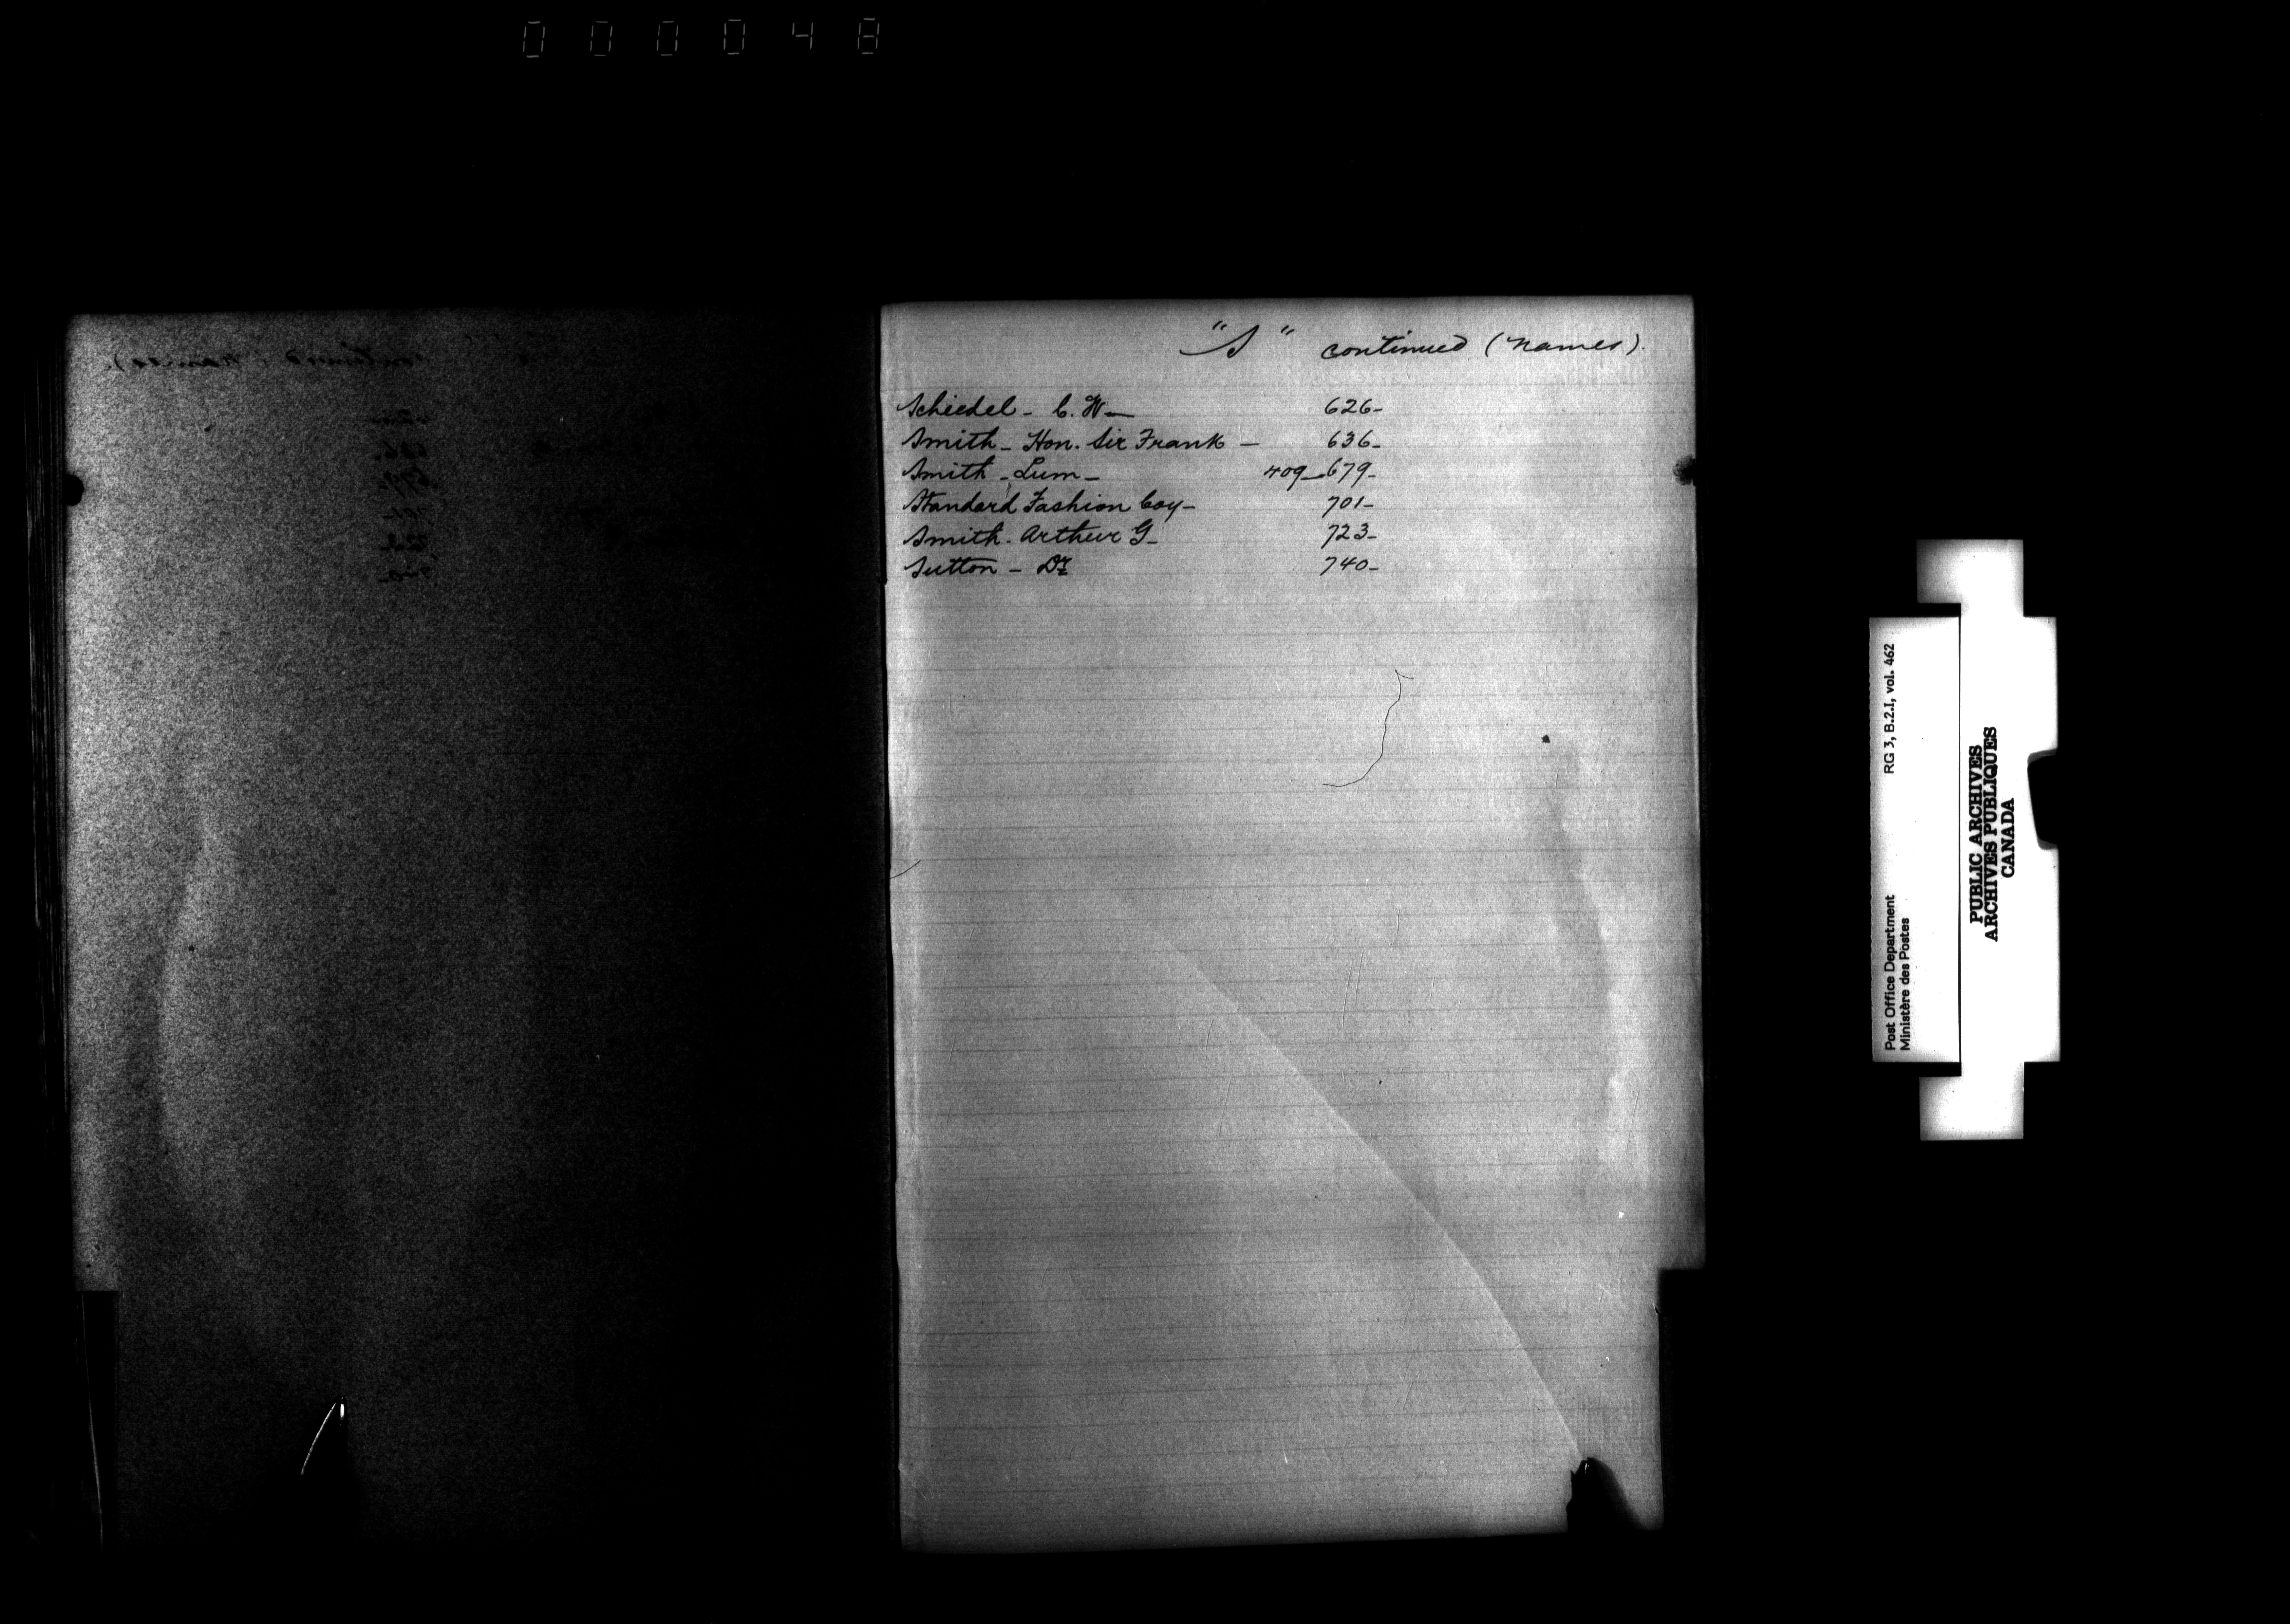 000048
"S" continued (Names).
Schiedel - C. W - 626-
Smith - Hon. Sir Frank - 636-
Smith - Lum - 409-679-
Standard Fashion Coy- 701-
Smith - Arthur G- 723-
Sutton - Dr 740-
Post Office Department
Ministère des Postes
RG 3, B.2.I, vol. 462
PUBLIC ARCHIVES
ARCHIVES PUBLIQUES
CANADA